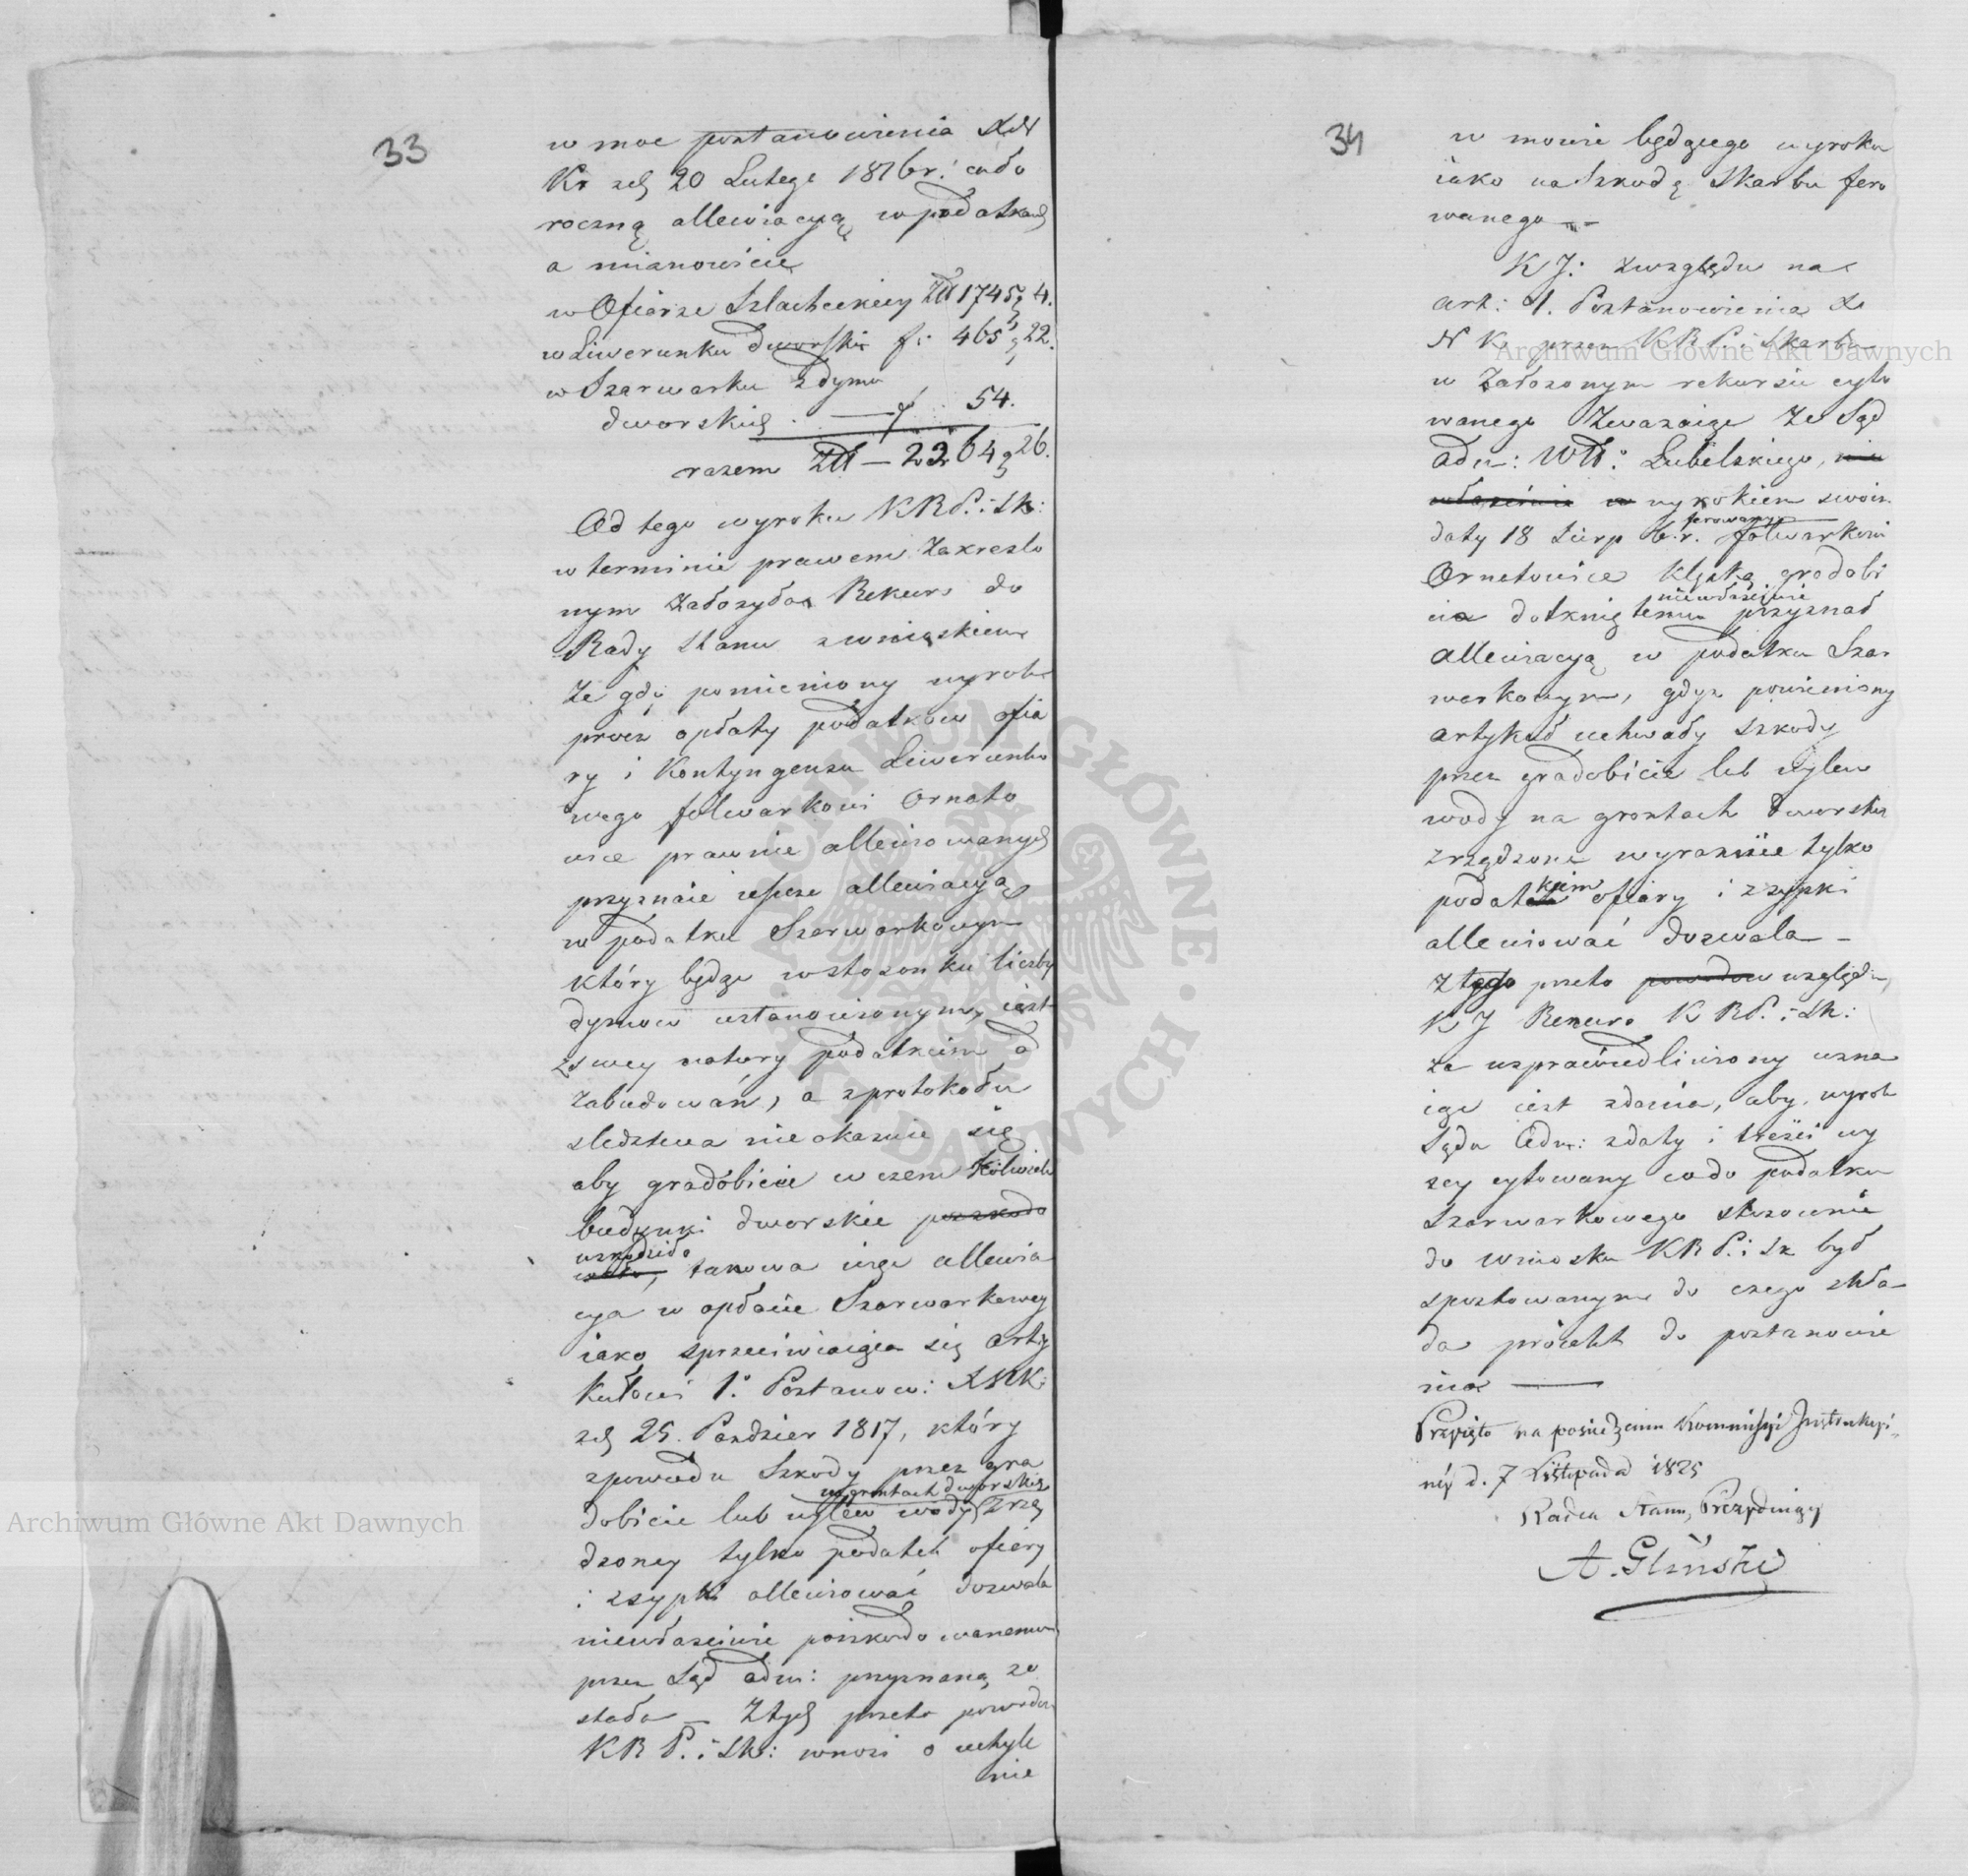 33
w moc postanowienia XN
Kr zd 20 Lutego 1816 r: cało
roczną allewiacyą w podatkach
a mianowicie
w Ofierze Szlacheckiey Złł 1745 g 4.
w Liwerunku dworskie f: 465 g 22.
w Szarwarku z dymu
dworskich . — f . 54.
razem Złł — 2264 g 26.
Od tego wyroku KRP. i Sk:
w terminie prawem zakreślo
nym założyła Rekurs do
Rady Stanu z wnioskiem
że gdy pomieniony wyrok
prócz opłaty podatkow ofia
ry i Kontyngensu Liwerunko
wego folwarkowi Ornato
wice prawnie allewiowanych
przyznaie ieszcze allewiacyą
w podatku Szarwarkowym
który będąc w stosonku liczby
dymow ustanowionym, iest
z swey natury podatkiem od
zabudowań, a z protokołu
sledztwa nie okazuie się
aby gradobicie w czem kolwiek
budynki dworskie poszkodo
uszkodziło
wało, takowa więc allewia
cya w opłacie Szarwarkowey
iako sprzeciwiaiąca się Arty
kułowi 1: Postanow: XNK:
zd 25. Pazdzier 1817, który
z powodu Szkody przez gra
na gruntach dworskich
dobicie lub wylew wody zrzą
dzoney tylko podatek ofiary
i zsypki allewiować dozwala
niewłaściwie poszkodowanemu
przez Sąd adm: przyznaną zo
stała — Z tych przeto powodów
KRP. i Sk: wnosi o uchyle
nie
34
w mowie będącego wyroku
iako na Szkodę Skarbu fero
wanego —
KJ: zwzględu na
art: 1. Postanowienia Xa
N K. przez KRP. i Skarbu
w założonym rekursie cyto
wanego Zważaiąc że Sąd
adm: Wtt: Lubelskiego, nie
właściwie w wyrokiem swoim
ferowanym
daty 18 Sierp b.r. folwarkowi
Ornatowice klęską gradobi
niewłaściwie
cia dotkniętemu przyznał
allewiacyą w podatku Szar
warkowym, gdyż powieniony
artykuł uchwały szkody
przez gradobicie lub wylew
wody na gruntach dworskich
zrządzone wyraznie tylko
kiem
podatek ofiary i zsypki
allewiować dozwala —
z tego przeto powodow względu
KJ Rekurs KRP. i Sk:
za usprawiedliwiony uzna
iąc iest zdania, aby wyrok
Sądu Adm: z daty i treści wy
żey cytowany co do podatku
Szarwarkowego stosownie
do wniosku KRP. i Sk był
sprostowanym do czego skła
da proiekt do postanowie
nia —
Przyięto na posiedzeniu Kommissyi Instrukcyi
néy d. 7 Listopada 1825
Radca Stanu, Prezyduiący
A. Gliński
Archiwum Główne Akt Dawnych
Archiwum Główne Akt Dawnych
ARCHIWUM GŁÓWNE AKT DAWNYCH